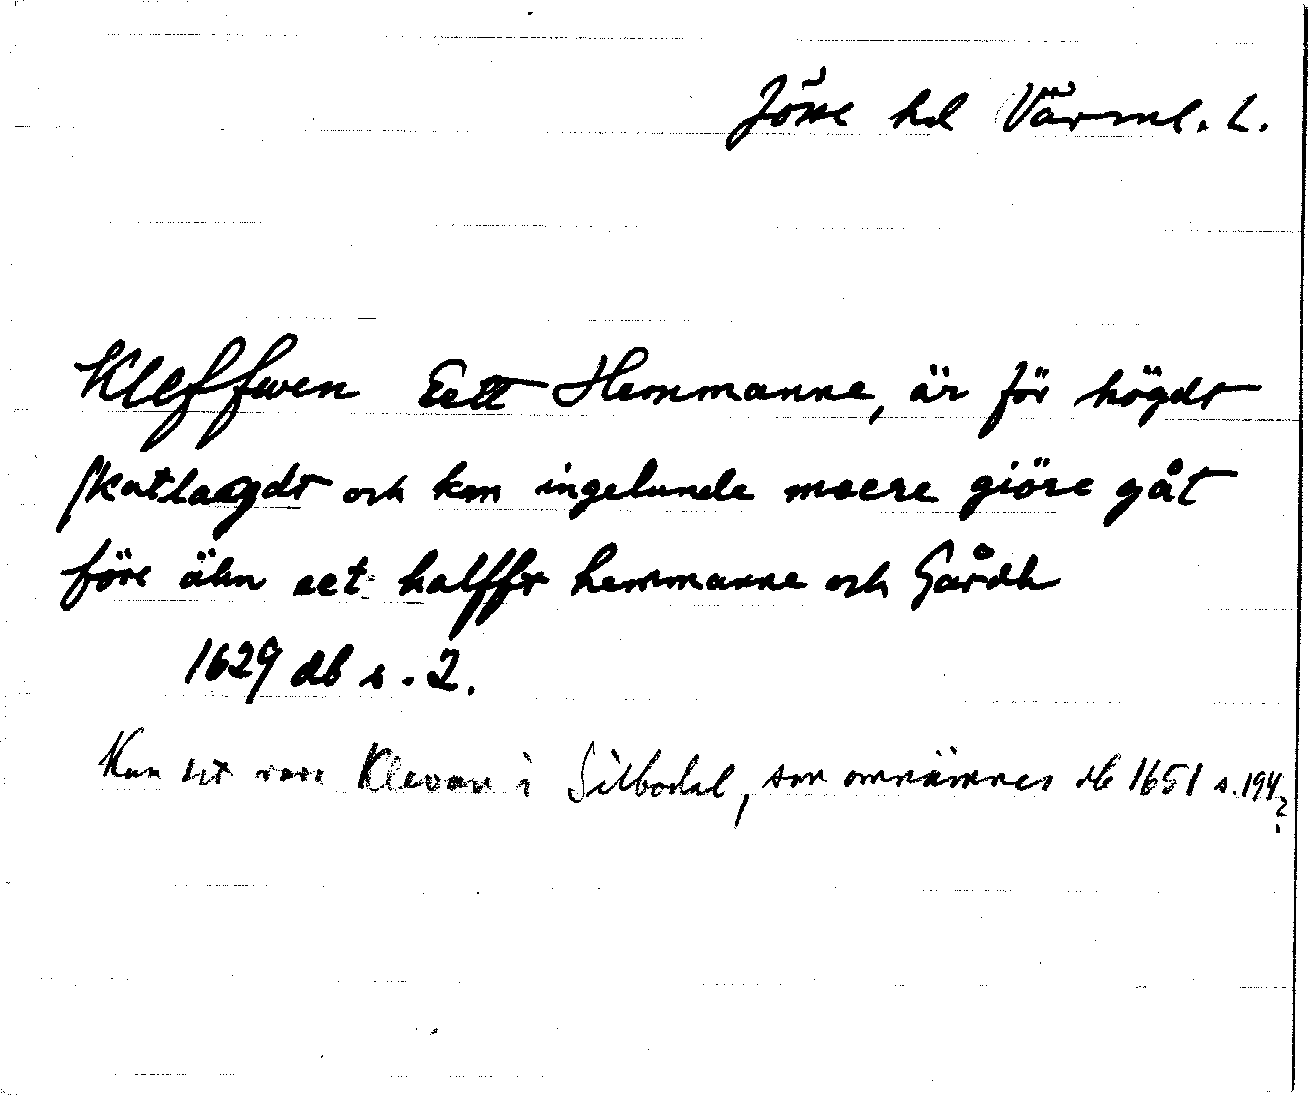 Jösse hd Värml. L.
Kleffwen Eett Hemmanne, är för högdt
skatlagdt och kan ingelunde meere giöre gåt
före ähn eet halfft hemmanne och Gårdh
1629 db s. 2.
Kan det vara Klevan i Silbodal, som omnämnes db 1651 s. 194?